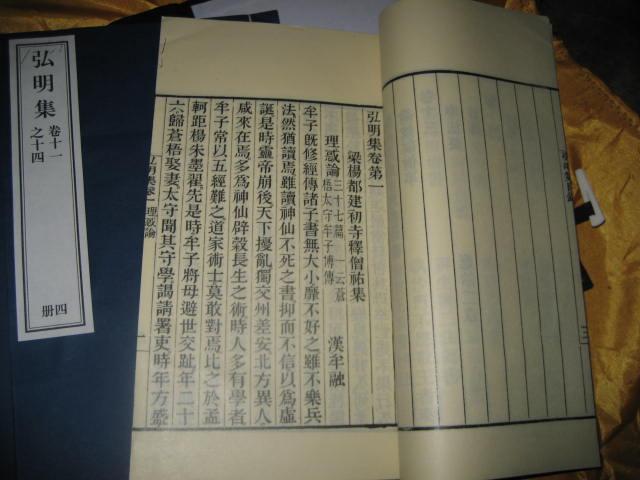 弘明集
卷十一
之十四
四册
弘明集卷第一
梁楊都建初寺釋僧祐集
理惑論
三十七篇 一云蒼
梧太守牟子博傳
漢牟融
牟子既修經傳諸子書無大小靡不好之雖不樂兵
法然猶讀焉雖讀神仙不死之書抑而不信以爲虛
誕是時靈帝崩後天下擾亂獨交州差安北方異人
咸來在焉多爲神仙辟穀長生之術時人多有學者
牟子常以五經難之道家術士莫敢對焉比之於孟
軻距楊朱墨翟先是時牟子將母避世交趾年二十
六歸蒼梧娶妻太守聞其守學謁請署吏時年方盛
弘明集卷一 理惑論
一
三